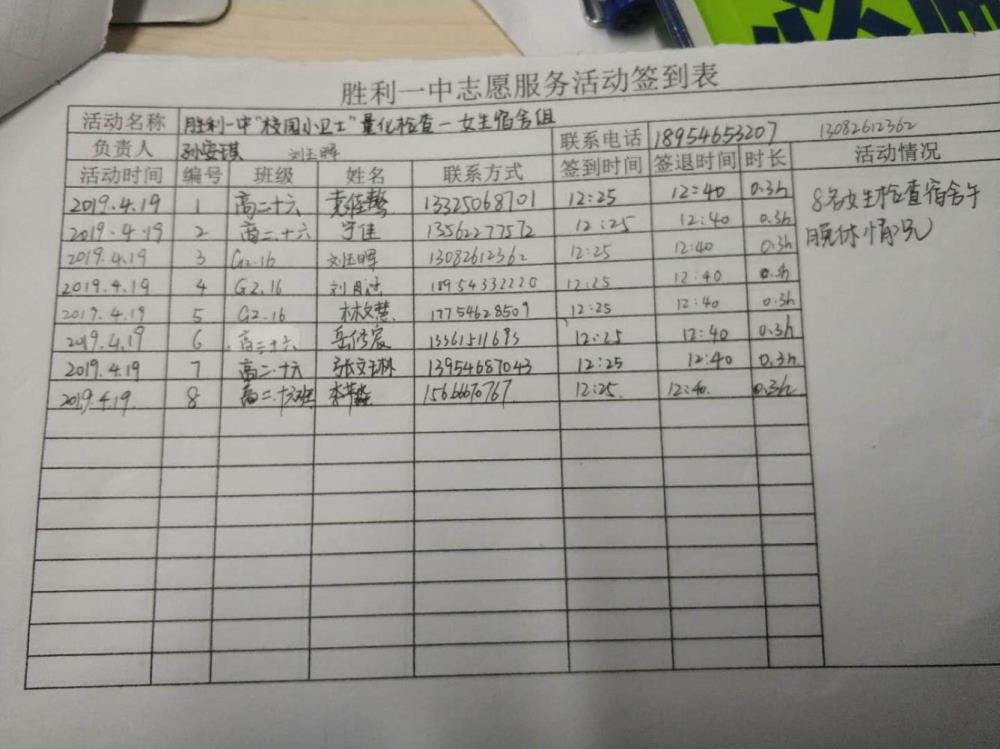 胜利一中志愿服务活动签到表
活动名称 胜利一中"校园小卫士"量化检查-女生宿舍组 联系电话 18954653207 13082612362
负责人 孙安琪 刘玉晖 签到时间 签退时间 时长 活动情况
活动时间 编号 班级 姓名 联系方式
2019.4.19 1 高二十六 13325068701 12:25 12:40 0.3h
2019.4.19 2 高二.十六 宁佳 13562277572 12:25 12:40 0.3h
2019.4.19 3 G2.16 刘玉晖 13082612362 12:25 12:40 0.3h
2019.4.19 4 G2.16 刘月 18954332220 12:25 12:40 0.3h
2019.4.19 5 G2.16 林文慧 17754628509 12:25 12:40 0.3h
2019.4.19 6 高二十六 岳修宸 13361511683 12:25 12:40 0.3h
2019.4.19 7 高二.十六 张文琳 13954687043 12:25 12:40 0.3h
2019.4.19. 8 高二.十六班 李 15666670767 12:25. 12:40. 0.3h
8名女生检查宿舍午
晚休情况